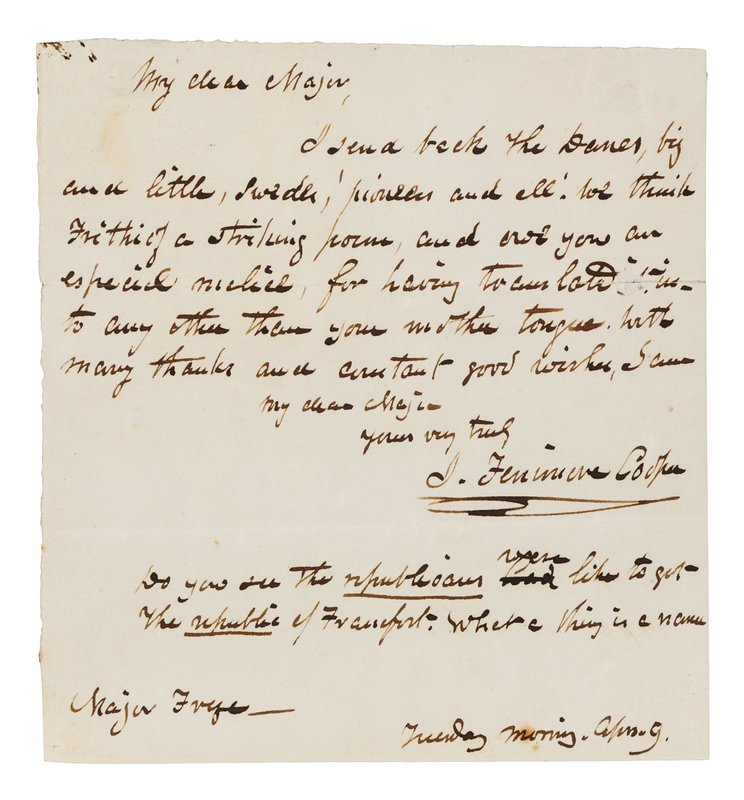 My dear Major,
I send back the Danes, big
and little, Swedes, pioneers and all. We think
Frithiof a striking poem, and owe you an
especial malice, for having translated it in-
to any other than your mother tongue. With
many thanks and constant good wishes, I am
My dear Major
yours very truly
J. Fenimore Cooper
Do you see the republicans were like to get
the republic of Francfort. What a thing is a name
Major Frye—
Tuesday morning. Apr. 9.